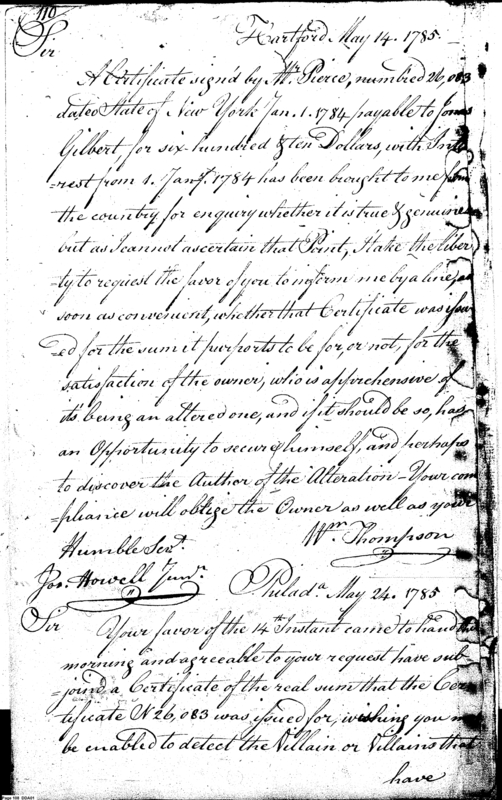 110
Hartford May 14. 1785.
Sir
A Certificate sign'd by Mr. Pierce, numbred 26,083
dated State of New York Jan. 1. 1784 payable to Jonas
Gilbert, for six hundred & ten Dollars, with Inte
=rest from 1. Jany. 1784 has been brought to me from
the country for enquiry whether it is true & genuine
but as I cannot ascertain that Point, I take the liber
=ty to request the favor of you to inform me by a line, as
soon as convenient, whether that Certificate was issu
=ed for the sum it purports to be for, or not, for the
satisfaction of the owner, who is apprehensive of
it's being an altered one, and if it should be so, has
an Opportunity to secure himself, and perhaps
to discover the Author of the Alteration - Your com
=pliance will oblige the Owner as well as your
Humble Servt. Wm. Thompson
Jos. Howell Junr.
Philada. May 24. 1785
Sir
Your favor of the 14th Instant came to hand this
morning and agreeable to your request have sub
=joind a Certificate of the real sum that the Cer
tificate N 26,083 was issued for, wishing you may
be enabled to detect the Villain or Villains that
have